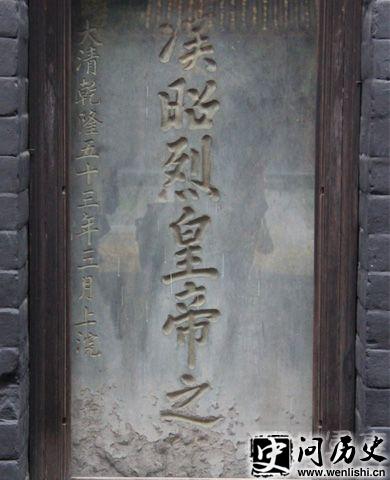 漢昭烈皇帝之
大清乾隆五十三年三月上浣
史问历史
www.wenlishi.cn